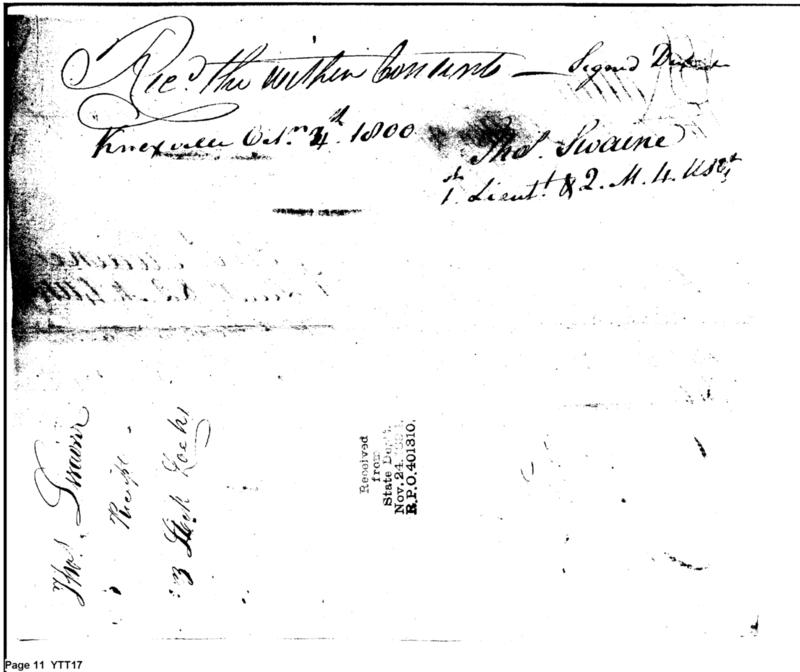 Rec.d the within Contents — Signed
Knoxville Oct.r 4th. 1800
Thos. Swaine
1. Lieut.t & 2. M. 4.
Thos. Swaine
Receipt
3 Stock Locks
Received
from
State Dept.
Nov. 24.
R.P.O. 401310.
Page 11 YTT17